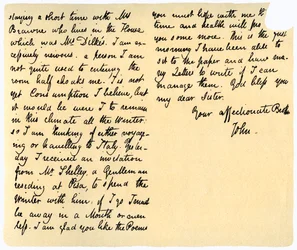 staying a short time with Mrs
Brawne who lives in the House
which was Mrs Dilke's. I am ex-
cessively nervous. a person I am
not quite used to entering the
room half choaks me. 'Tis not
yet Consumption I believe, but
it would be were I to remain
in this climate all the Winter:
so I am thinking of either voyag-
ing or travelling to Italy. Yester-
day I received an invitation
from Mr Shelley, a Gentleman
residing at Pisa, to spend the
Winter with him: if I go I must
be away in a Month or even
less. I am glad you like the Poems
you must hope with me that
time and health will pro
you some more. This is the first
morning I have been able to
sit to the paper and have ma-
ny Letters to write if I can
manage them. God bless you
my dear Sister.
Your affectionate Brother
John